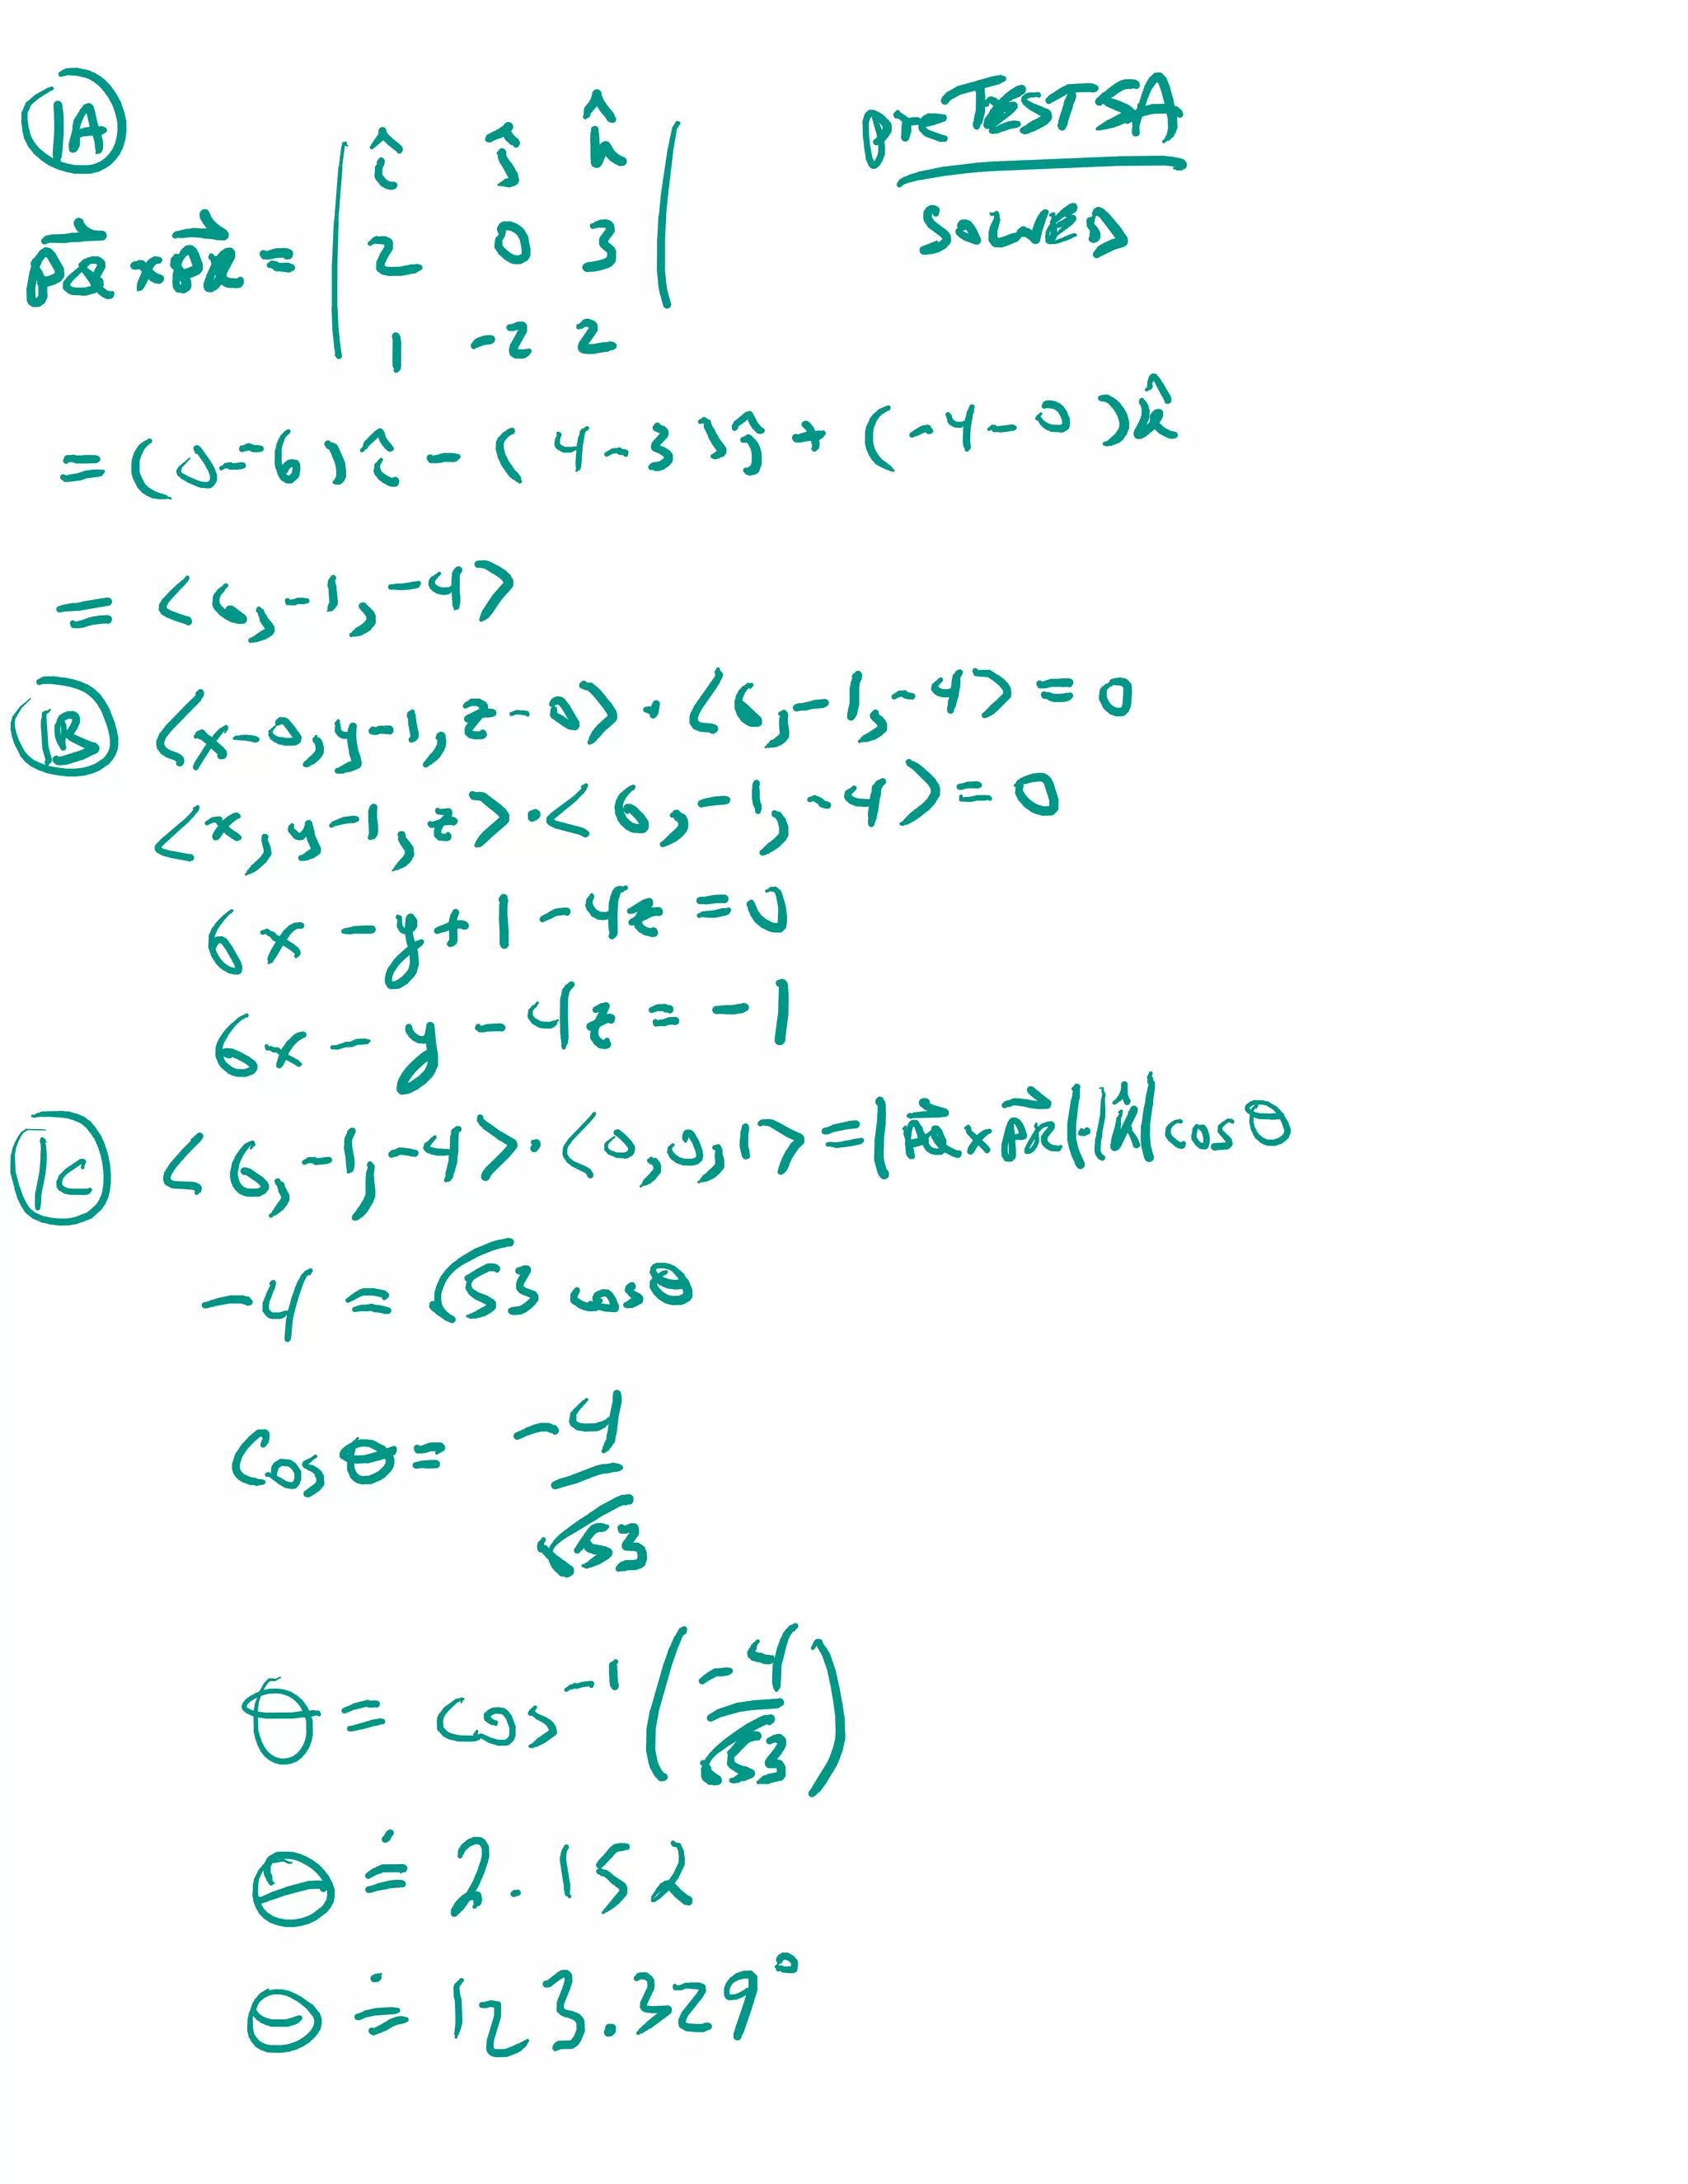 1A
pre TEST 5A
SOLVED
PQ⃗ × PR⃗ = | î ĵ k̂ |
2 0 3
1 -2 2
= (0--6)î - (4-3)ĵ + (-4-0)k̂
= <6, -1, -4>
1B <x-0, y-1, z-0> · <6, -1, -4> = 0
<x, y-1, z> · <6, -1, -4> = 0
6x - y + 1 - 4z = 0
6x - y - 4z = -1
1C <6, -1, -4> · <0, 0, 1> = |PQ⃗ × PR⃗| · |k̂| cos θ
-4 = √53 cos θ
cos θ = -4/√53
θ = cos⁻¹(-4/√53)
θ ≐ 2.152
θ ≐ 123.329°